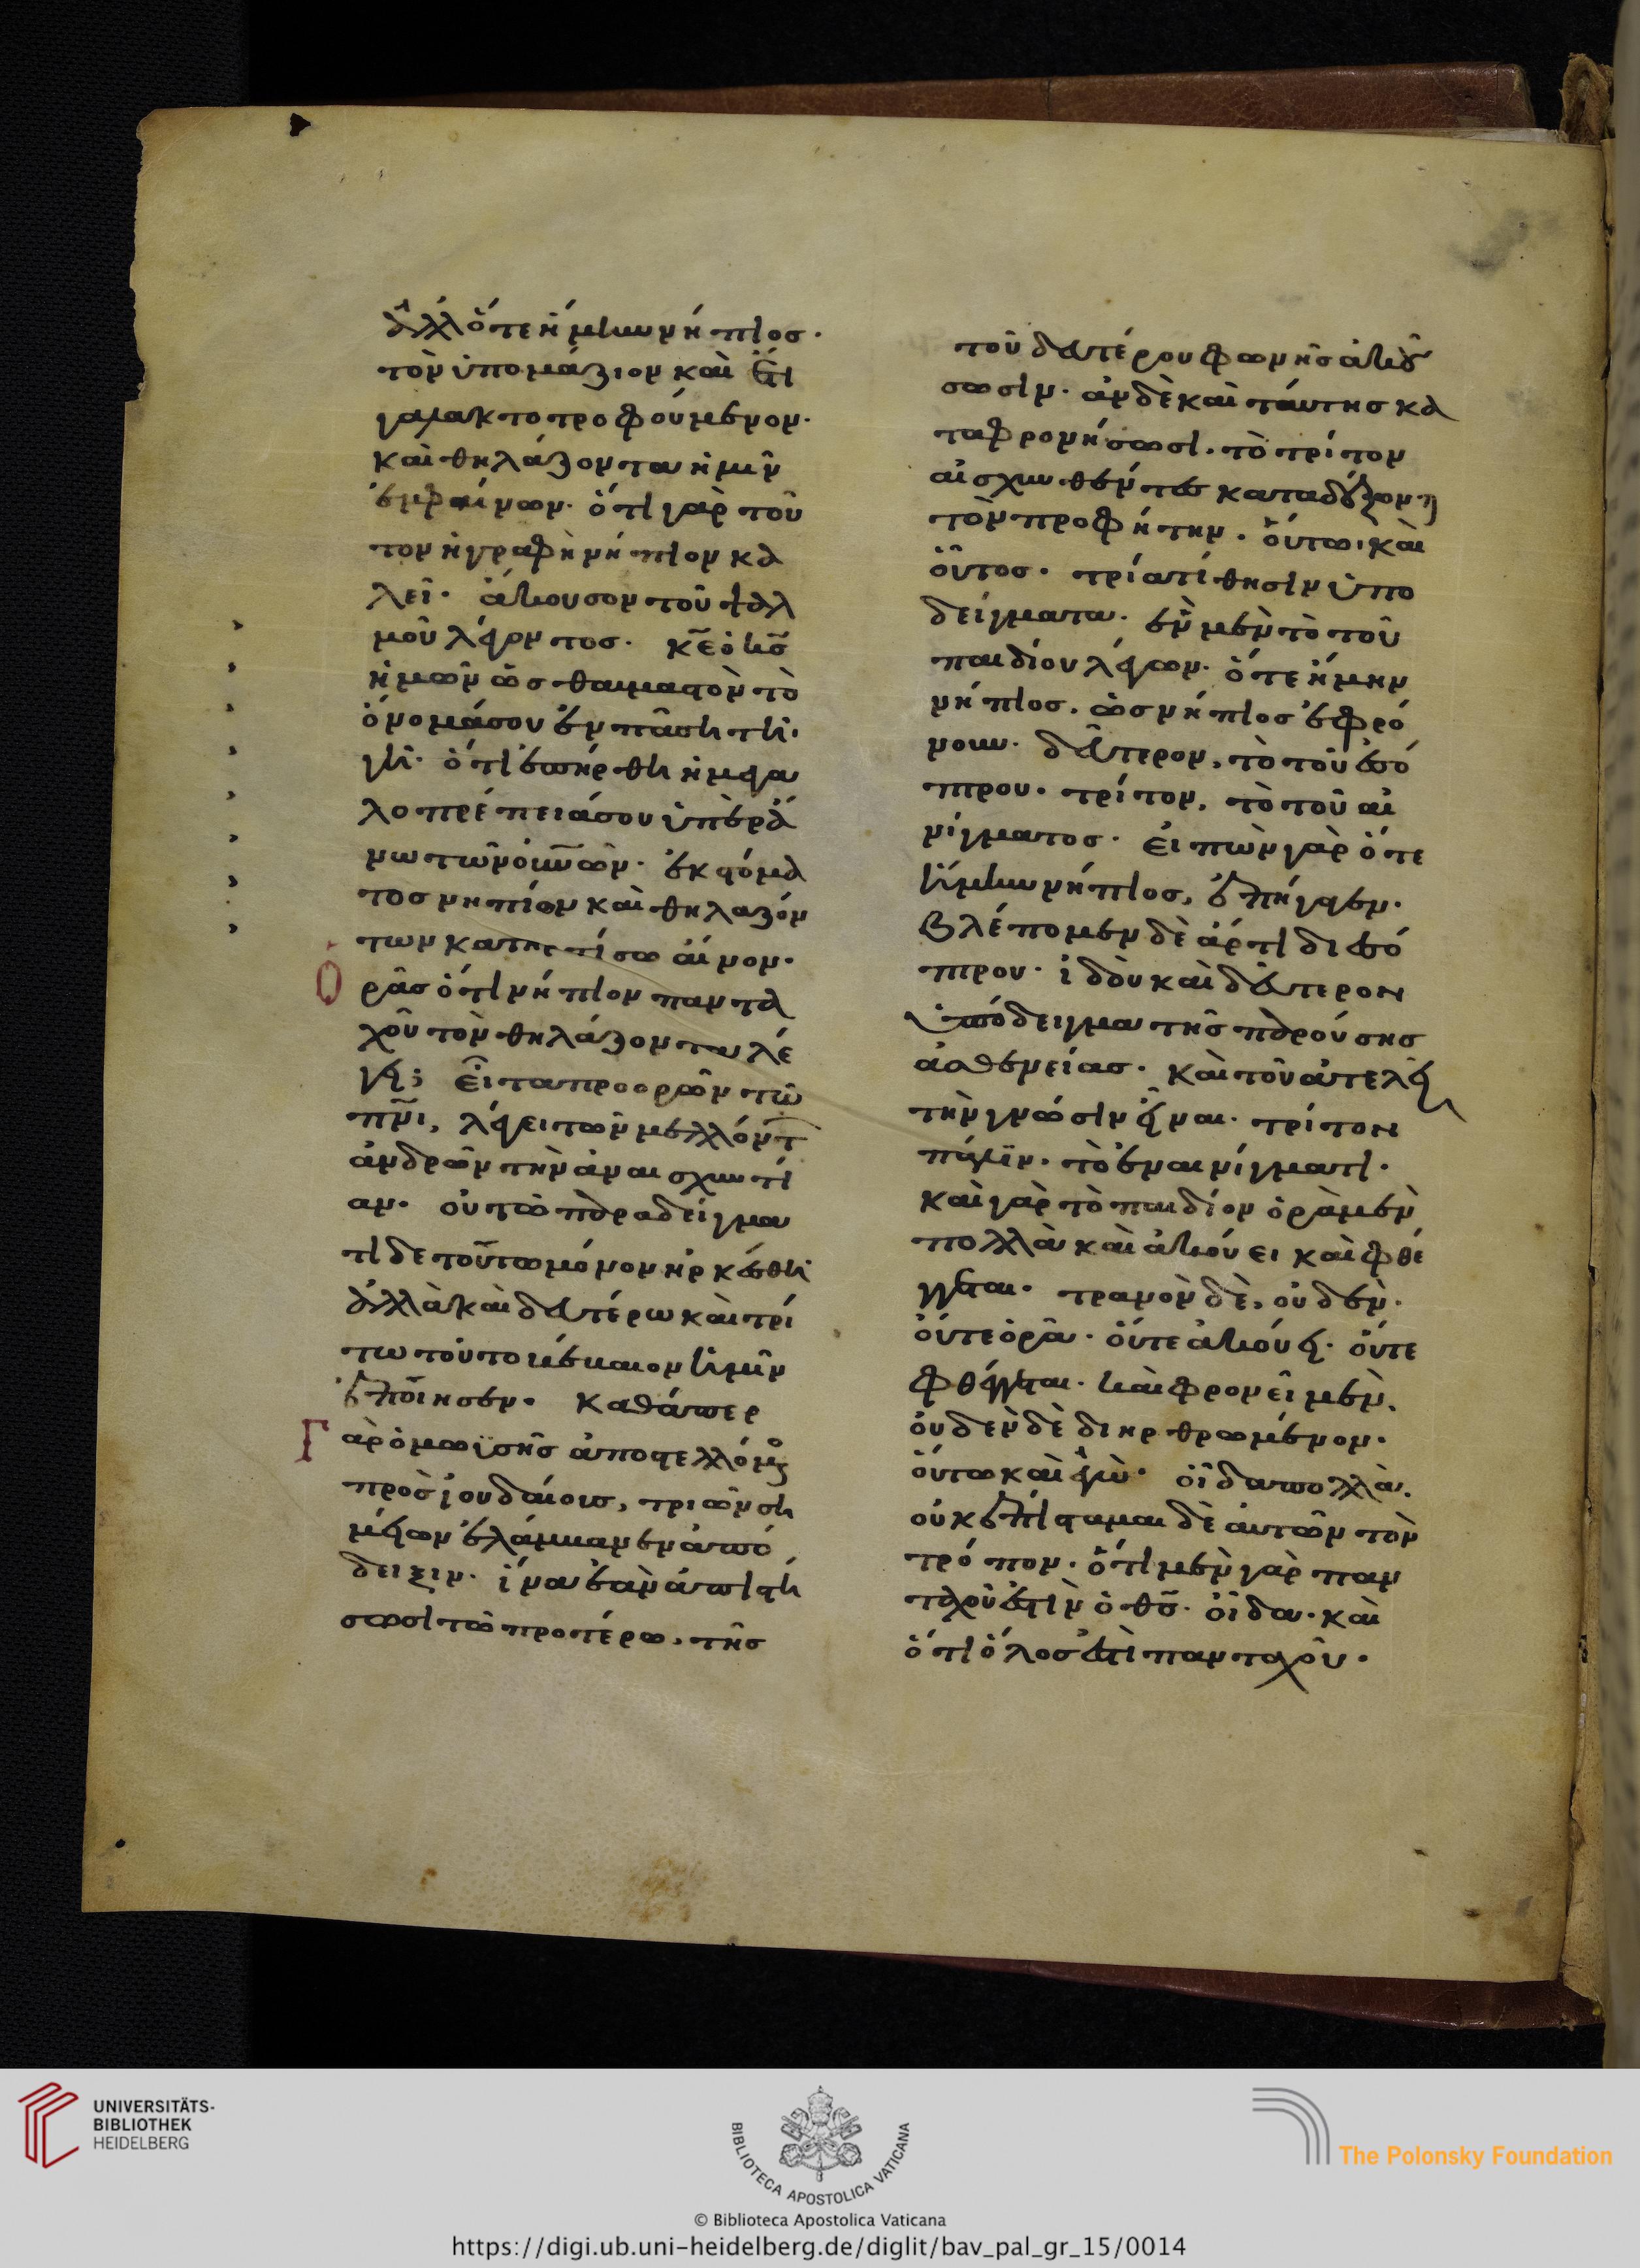 ἀλλ ὅτε ἤμην νήπιος·
τὸν ὑπομάζιον καὶ ἔτι
γαλακτοτροφούμενον·
καὶ θηλάζοντα ἡμῖν
ἐμφαίνων· ὅτι γὰρ τοῦ
τον ἡ γραφὴ νήπιον κα
λεῖ· ἄκουσον τοῦ ψαλ
μοῦ λέγοντος· κε ὁ κς
ἡμῶν ὡς θαυμαστὸν τὸ
ὄνομά σου ἐν πάσῃ τῇ
γῇ· ὅτι ἐπήρθη ἡ μεγα
λοπρέπειά σου ὑπὲρ ἄ
νω τῶν οὐνῶν· ἐκ στόμα
τος νηπίων καὶ θηλαζόν
των κατηρτίσω αἶνον·
Ὁρᾶς ὅτι νήπιον παντα
χοῦ τὸν θηλάζοντα λέ
γει; εἶτα προορῶν τῶ
πνι, λέγει τῶν μελλόντ
ἀνδρῶν τὴν ἀναισχυντί
αν· οὐ τῶ παραδείγμα
τι δὲ τούτω μόνον ἠρκέσθη
ἀλλὰ καὶ δευτέρω καὶ τρί
τω τοῦτο βέβαιον ἡμῖν
ἐποίησεν· Καθάπερ
Γὰρ ὁ μωϋσῆς ἀποστελλόμενος
πρὸς ἰουδαίους, τριῶν ση
μείων ἐλάμβανεν ἀπό
δειξιν· ἵνα ἐὰν ἀπιστή
σωσι τῶ προτέρω, τῆς
τοῦ δευτέρου φωνῆς ἀκού
σωσιν· ἂν δὲ καὶ ταύτης κα
ταφρονήσωσι, τὸ τρίτον
αἰσχυνθέντες καταδέξονται
τὸν προφήτην· οὕτω καὶ
οὗτος· τρία τίθησιν ὑπο
δείγματα· ἓν μὲν τὸ τοῦ
παιδίου λέγων· ὅτε ἤμην
νήπιος, ὡς νήπιος ἐφρό
νουν· δεύτερον, τὸ τοῦ ἐσό
πτρου· τρίτον, τὸ τοῦ αἰ
νίγματος· εἰπὼν γὰρ ὅτε
ἤμην νήπιος, ἐπήγαγεν·
βλέπομεν δὲ ἄρτι δι ἐσό
πτρου· ἰδοὺ καὶ δεύτερον
ὑπόδειγμα τῆς παρούσης
ἀσθενείας· καὶ τοῦ ἀτελῆ
τὴν γνῶσιν εἶναι· τρίτον
πάλιν· τὸ ἐν αἰνίγματι·
καὶ γὰρ τὸ παιδίον ὁρᾶ μὲν
πολλὰ καὶ ἀκούει καὶ φθέ
γγεται· τρανὸν δὲ, οὐδὲν·
οὔτε ὁρᾶ· οὔτε ἀκούει· οὔτε
φθέγγεται· καὶ φρονεῖ μὲν,
οὐδὲν δὲ διηρθρωμένον·
οὕτω καὶ ἐγὼ· οἶδα πολλὰ·
οὐκ ἐπίσταμαι δὲ αὐτῶν τὸν
τρόπον· ὅτι μὲν γὰρ παν
ταχοῦ ἐστὶν ὁ θς· οἶδα· καὶ
ὅτι ὅλος ἐστὶ πανταχοῦ·
UNIVERSITÄTS-
BIBLIOTHEK
HEIDELBERG
BIBLIOTECA APOSTOLICA VATICANA
The Polonsky Foundation
© Biblioteca Apostolica Vaticana
https://digi.ub.uni-heidelberg.de/diglit/bav_pal_gr_15/0014